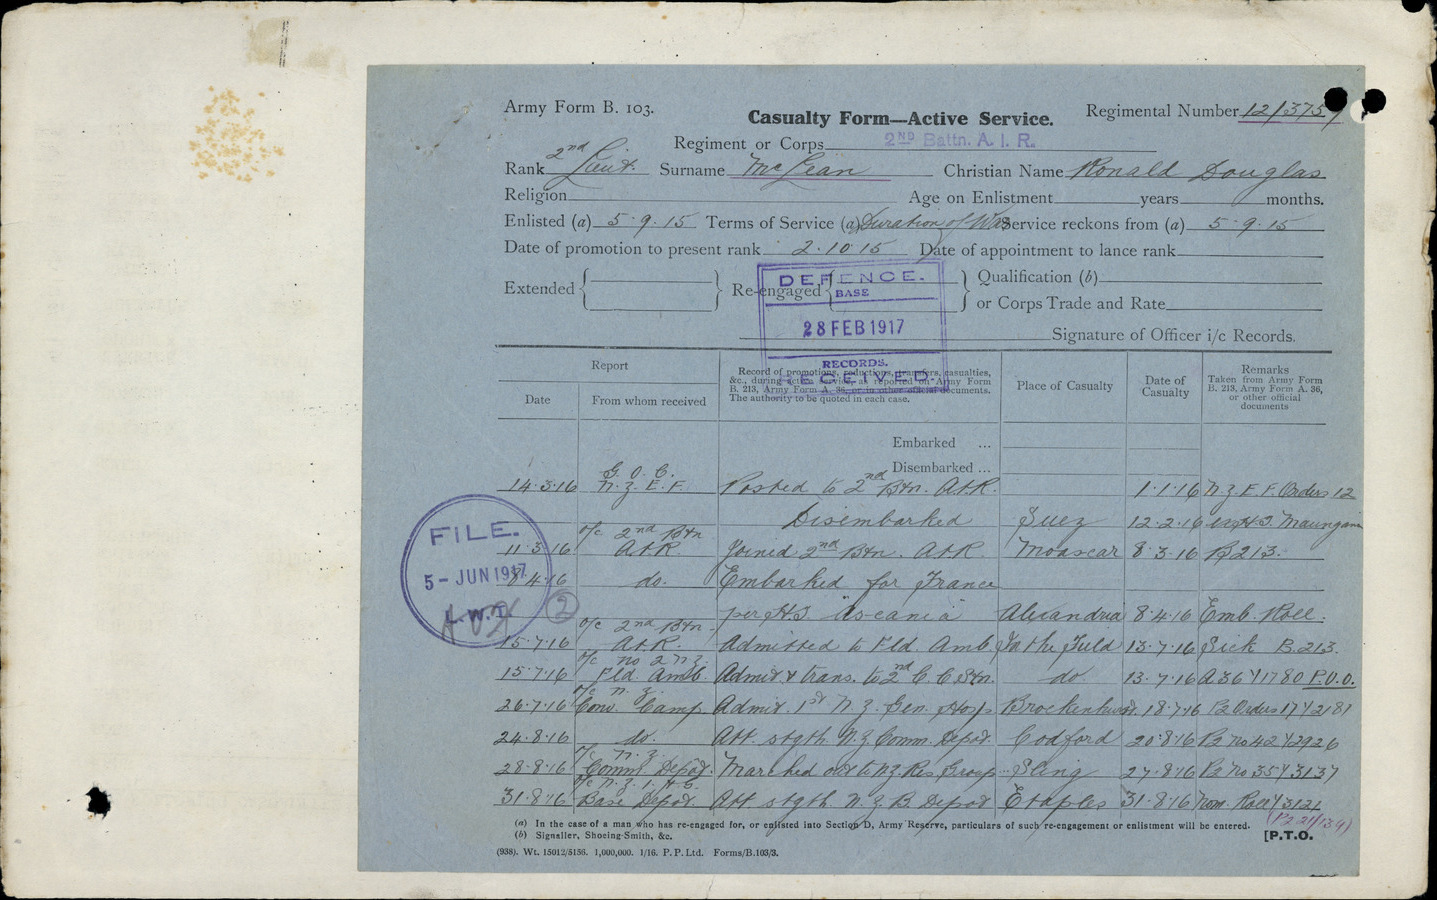 Army Form B. 103.
Casualty Form—Active Service.
Regimental Number 12/3759
Regiment or Corps 2ND Battn. A. I. R.
Rank 2nd Lieut. Surname McLean Christian Name Ronald Douglas
Religion Age on Enlistment years months.
Enlisted (a) 5.9.15 Terms of Service (a) Duration of War Service reckons from (a) 5.9.15
Date of promotion to present rank 2.10.15 Date of appointment to lance rank
Extended Re-engaged Qualification (b)
or Corps Trade and Rate
DEFENCE.
BASE
28 FEB 1917
RECORDS.
RECEIVED
Signature of Officer i/c Records.
Report
Date From whom received
Record of promotions, reductions, transfers, casualties,
&c., during active service, as reported on Army Form
B. 213, Army Form A. 36, or in other official documents.
The authority to be quoted in each case.
Place of Casualty
Date of Casualty
Remarks
Taken from Army Form
B. 213, Army Form A. 36,
or other official
documents
Embarked ...
Disembarked ...
14.3.16 G.O.C. N.Z.E.F. Posted to 2nd Btn. A.I.R. 1.1.16 N.Z.E.F. Orders 12
Disembarked Suez 12.2.16 Maungan
11.3.16 o/c 2nd Btn A.I.R. Joined 2nd Btn. A.I.R. Moascar 8.3.16 B213.
8.4.16 do. Embarked for France
per HS "Ascania" Alexandria 8.4.16 Emb. Roll.
15.7.16 o/c 2nd Btn. A.I.R. Admitted to Fld. Amb In the Field 13.7.16 Sick B.213.
15.7.16 o/c No 2 N.Z. Fld. Amb. Admit & trans. to 2nd C.C. Stn. do 13.7.16 A36 Y1780 P.U.O.
26.7.16 o/c N.Z. Conv. Camp. Admit. 1st N.Z. Gen. Hosp Brockenhurst. 18.7.16 B2 Orders 17 Y2181
24.8.16 do. Att. stgth. N.Z. Comm. Depot. Codford 20.8.16 B2 No 42 Y2926
28.8.16 o/c N.Z. Comm. Depot. Marched out to N.Z. Res. Group Sling 27.8.16 B2 No 35 Y3137
31.8.16 Base Depot. Att. stgth. N.Z. B. Depot Etaples 31.8.16 Nom. Roll Y3121
FILE.
5-JUN 1917
L.W.T.
2
(a) In the case of a man who has re-engaged for, or enlisted into Section D, Army Reserve, particulars of such re-engagement or enlistment will be entered.
(b) Signaller, Shoeing-Smith, &c.
[P.T.O.
(938). Wt. 15012/5156. 1,000,000. 1/16. P. P. Ltd. Forms/B.103/3.